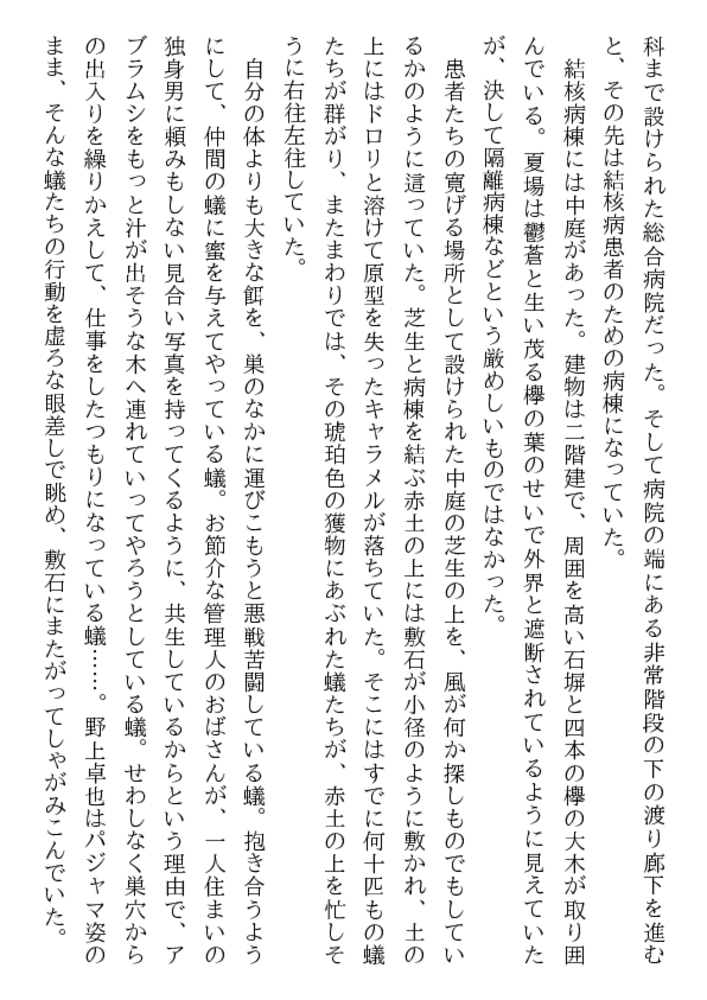 科まで設けられた総合病院だった。そして病院の端にある非常階段の下の渡り廊下を進む
と、その先は結核病患者のための病棟になっていた。
結核病棟には中庭があった。建物は二階建で、周囲を高い石塀と四本の欅の大木が取り囲
んでいる。夏場は鬱蒼と生い茂る欅の葉のせいで外界と遮断されているように見えていた
が、決して隔離病棟などという厳めしいものではなかった。
患者たちの寛げる場所として設けられた中庭の芝生の上を、風が何か探しものでもしてい
るかのように這っていた。芝生と病棟を結ぶ赤土の上には敷石が小径のように敷かれ、土の
上にはドロリと溶けて原型を失ったキャラメルが落ちていた。そこにはすでに何十匹もの蟻
たちが群がり、またまわりでは、その琥珀色の獲物にあぶれた蟻たちが、赤土の上を忙しそ
うに右往左往していた。
自分の体よりも大きな餌を、巣のなかに運びこもうと悪戦苦闘している蟻。抱き合うよう
にして、仲間の蟻に蜜を与えてやっている蟻。お節介な管理人のおばさんが、一人住まいの
独身男に頼みもしない見合い写真を持ってくるように、共生しているからという理由で、ア
ブラムシをもっと汁が出そうな木へ連れていってやろうとしている蟻。せわしなく巣穴から
の出入りを繰りかえして、仕事をしたつもりになっている蟻……。野上卓也はパジャマ姿の
まま、そんな蟻たちの行動を虚ろな眼差しで眺め、敷石にまたがってしゃがみこんでいた。